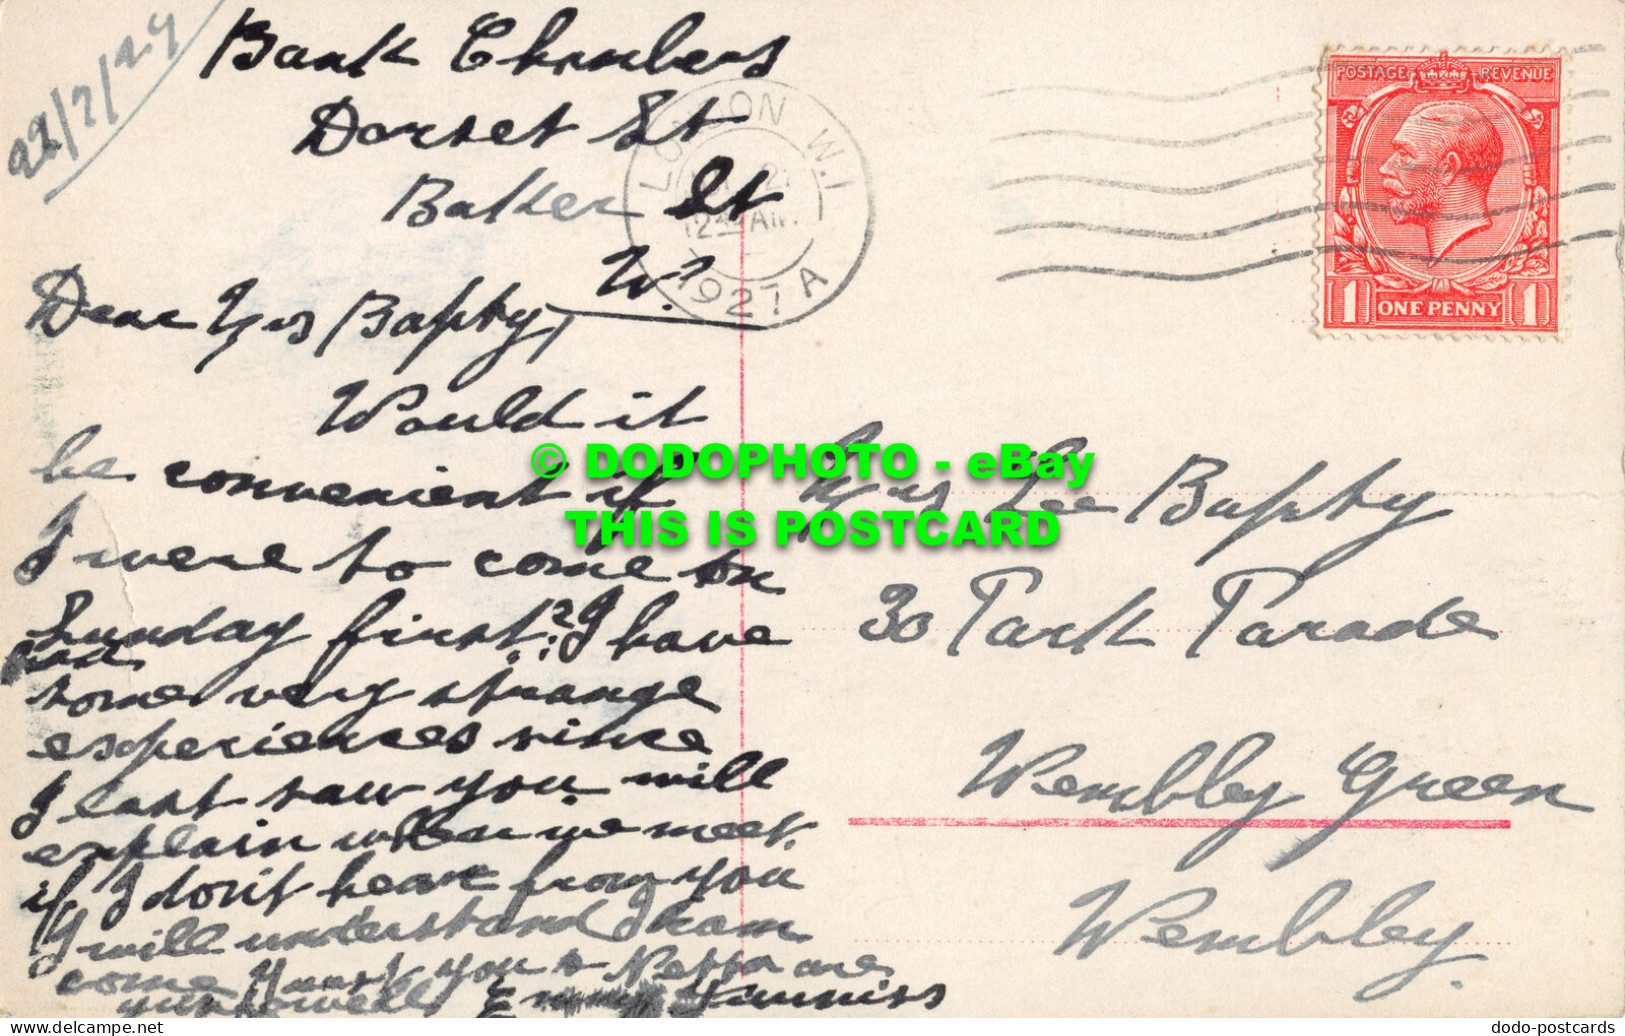 22/7/27
Bank Chambers
Dorset St
Baker St
W.1
Dear Mrs Bapty,
Would it
be convenient if
I were to come on
Sunday first? I have
had
some very strange
experiences since
I last saw you. will
explain when we meet.
if I don't hear from you
I will understand I can
come. trust you & Netta are
quite well. Emmy
LONDON W.1
12 AM
1927 A
POSTAGE REVENUE
1 ONE PENNY 1
© DODOPHOTO - eBay
THIS IS POSTCARD
Mrs Lee Bapty
30 Park Parade
Wembley Green
Wembley.
dodo-postcards